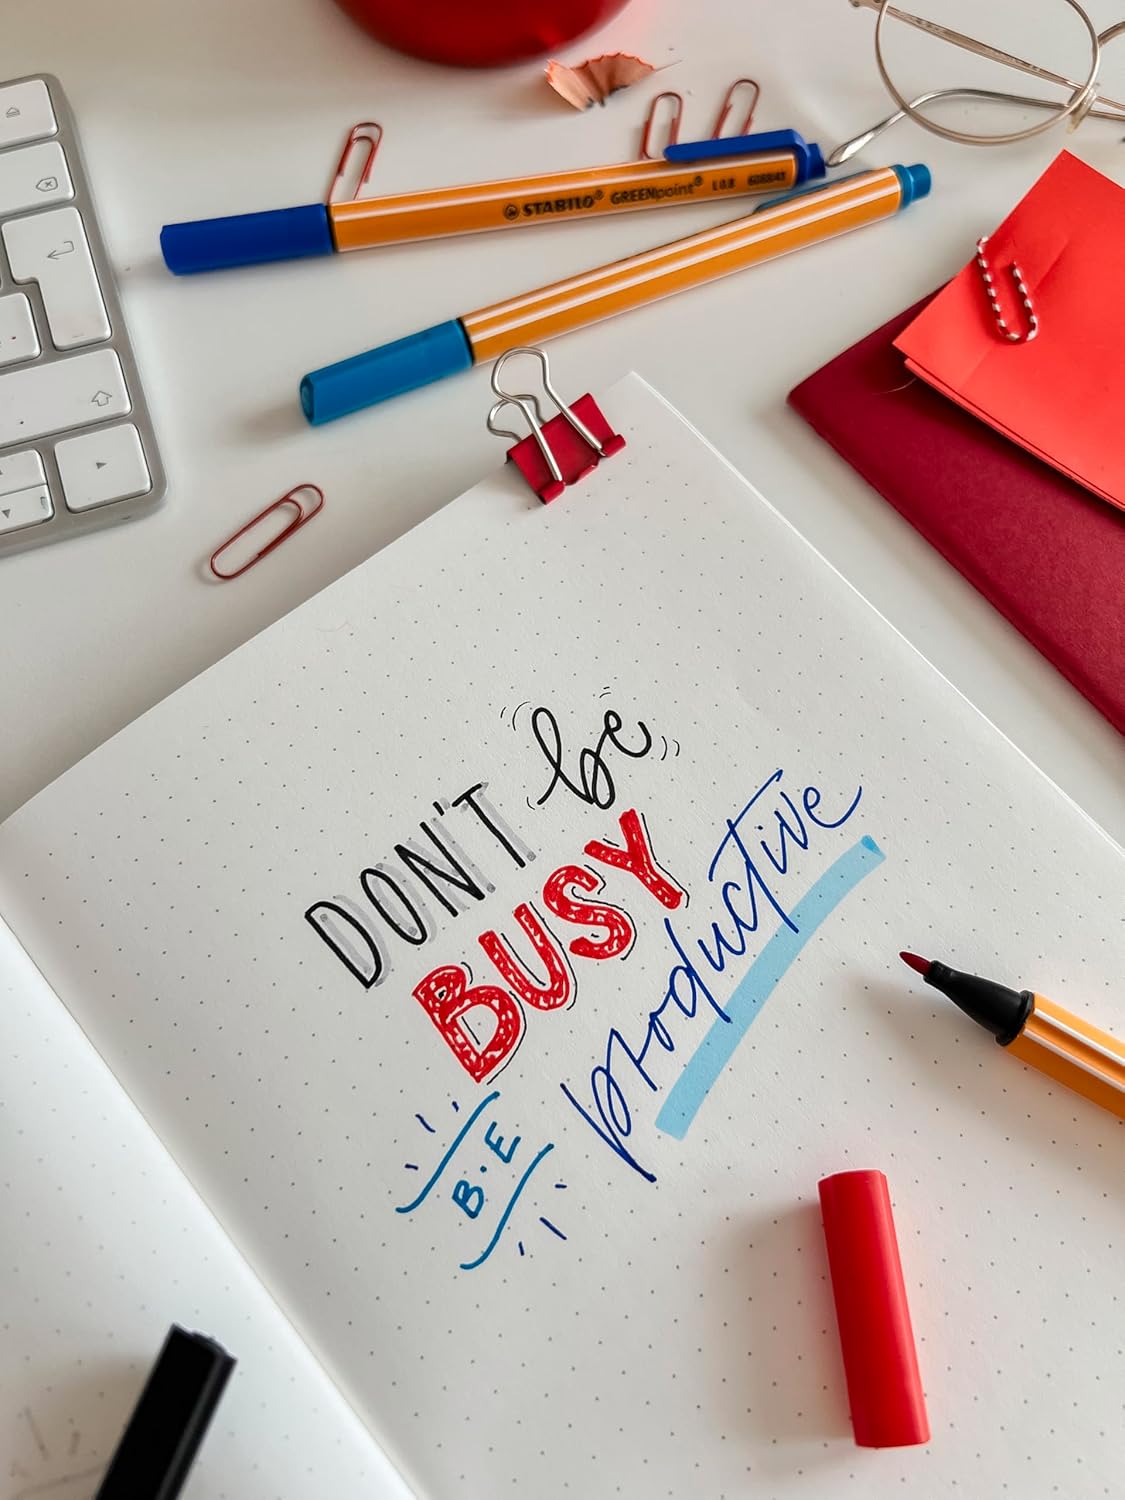 STABILO® GREENpoint®
DON'T be
BUSY
B·E productive